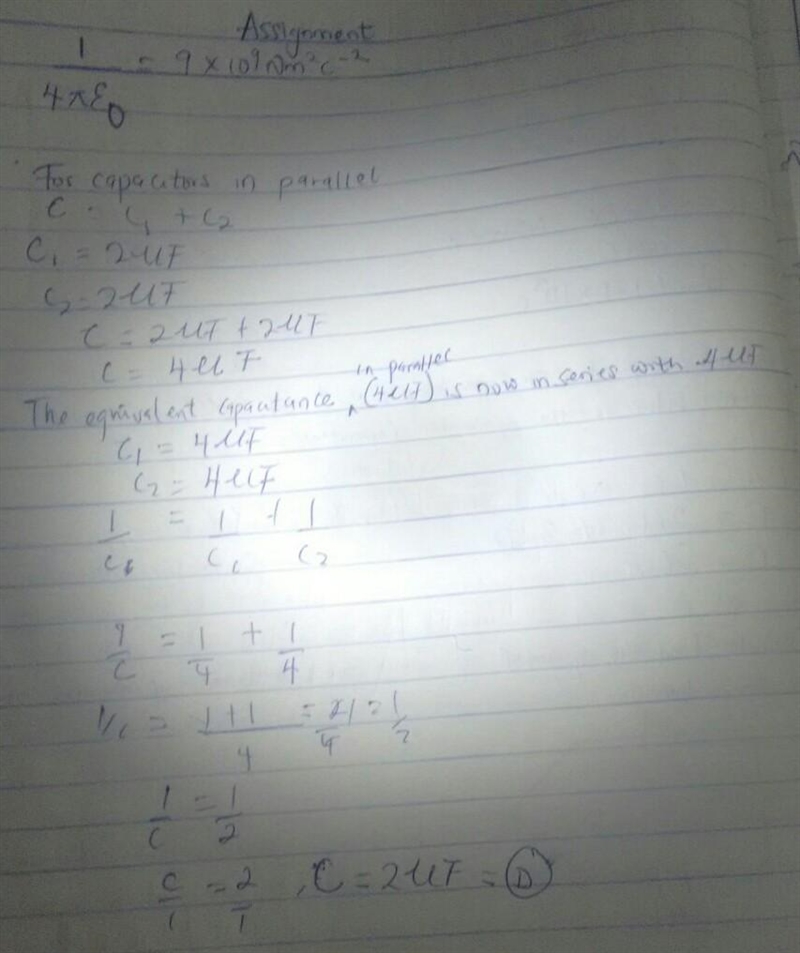 Assignment
1/4πε0 = 9 × 10^9 Nm²C⁻²
For capacitors in parallel
C = C₁ + C₂
C₁ = 2μF
C₂ = 2μF
C = 2μF + 2μF
C = 4μF
The equivalent capacitance in parallel (4μF) is now in series with 4μF
C₁ = 4μF
C₂ = 4μF
1/C = 1/C₁ + 1/C₂
1/C = 1/4 + 1/4
1/C = 1+1/4 = 2/4 = 1/2
1/C = 1/2
C/1 = 2/1, C = 2μF = D